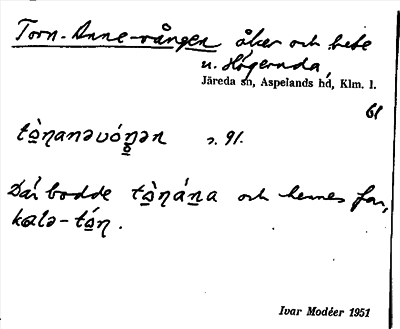 Torn-Anne-vången åker och bete
u. Högeruda,
Järeda sn, Aspelands hd, Klm. l.
61
tò̠ŋanəvóŋ̠ən s. 91.
Där bodde tò̠ŋán̠a och hennes far,
kalə-tó̠ŋ.
Ivar Modéer 1951